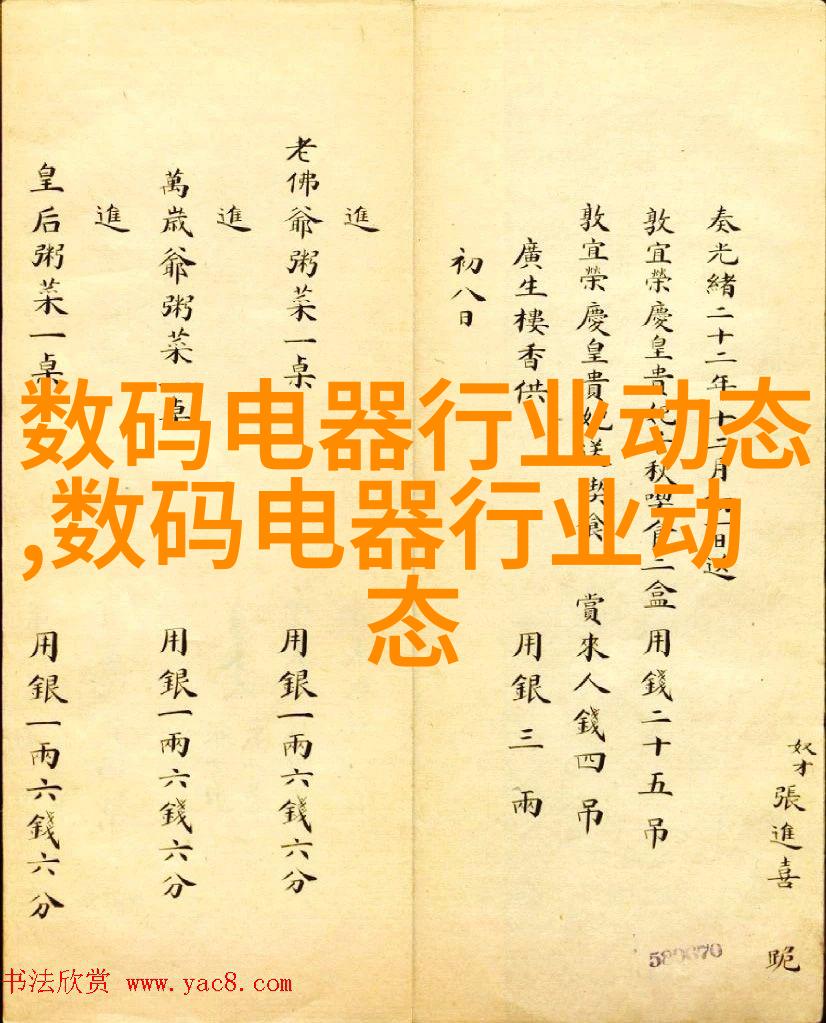 奴才張進喜 跪
奏光緒二十二年十二月日送
敦宜榮慶皇貴妃秋喫食二盒 用錢二十五吊
敦宜榮慶皇貴妃送喫食 賞來人錢四吊
廣生樓香供 用銀三兩
初八日
進
老佛爺粥菜一桌 用銀一兩六錢六分
進
萬歲爺粥菜一桌 用銀一兩六錢六分
進
皇后粥菜一桌 用銀一兩六錢六分
数码电器行业动态
,数码电器行业动
态
书法欣赏 www.yac8.com